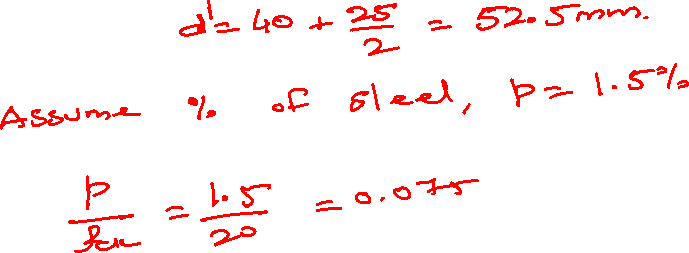 d' = 40 + 25/2 = 52.5mm.
Assume % of steel, p = 1.5%
p/fck = 1.5/20 = 0.075